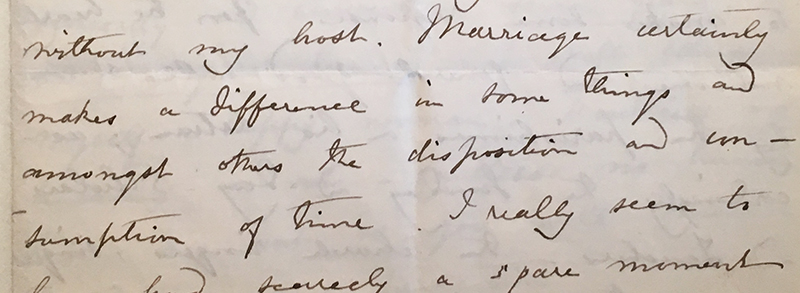 without my host. Marriage certainly
makes a difference in some things and
amongst others the disposition and con-
sumption of time. I really seem to
have had scarcely a spare moment